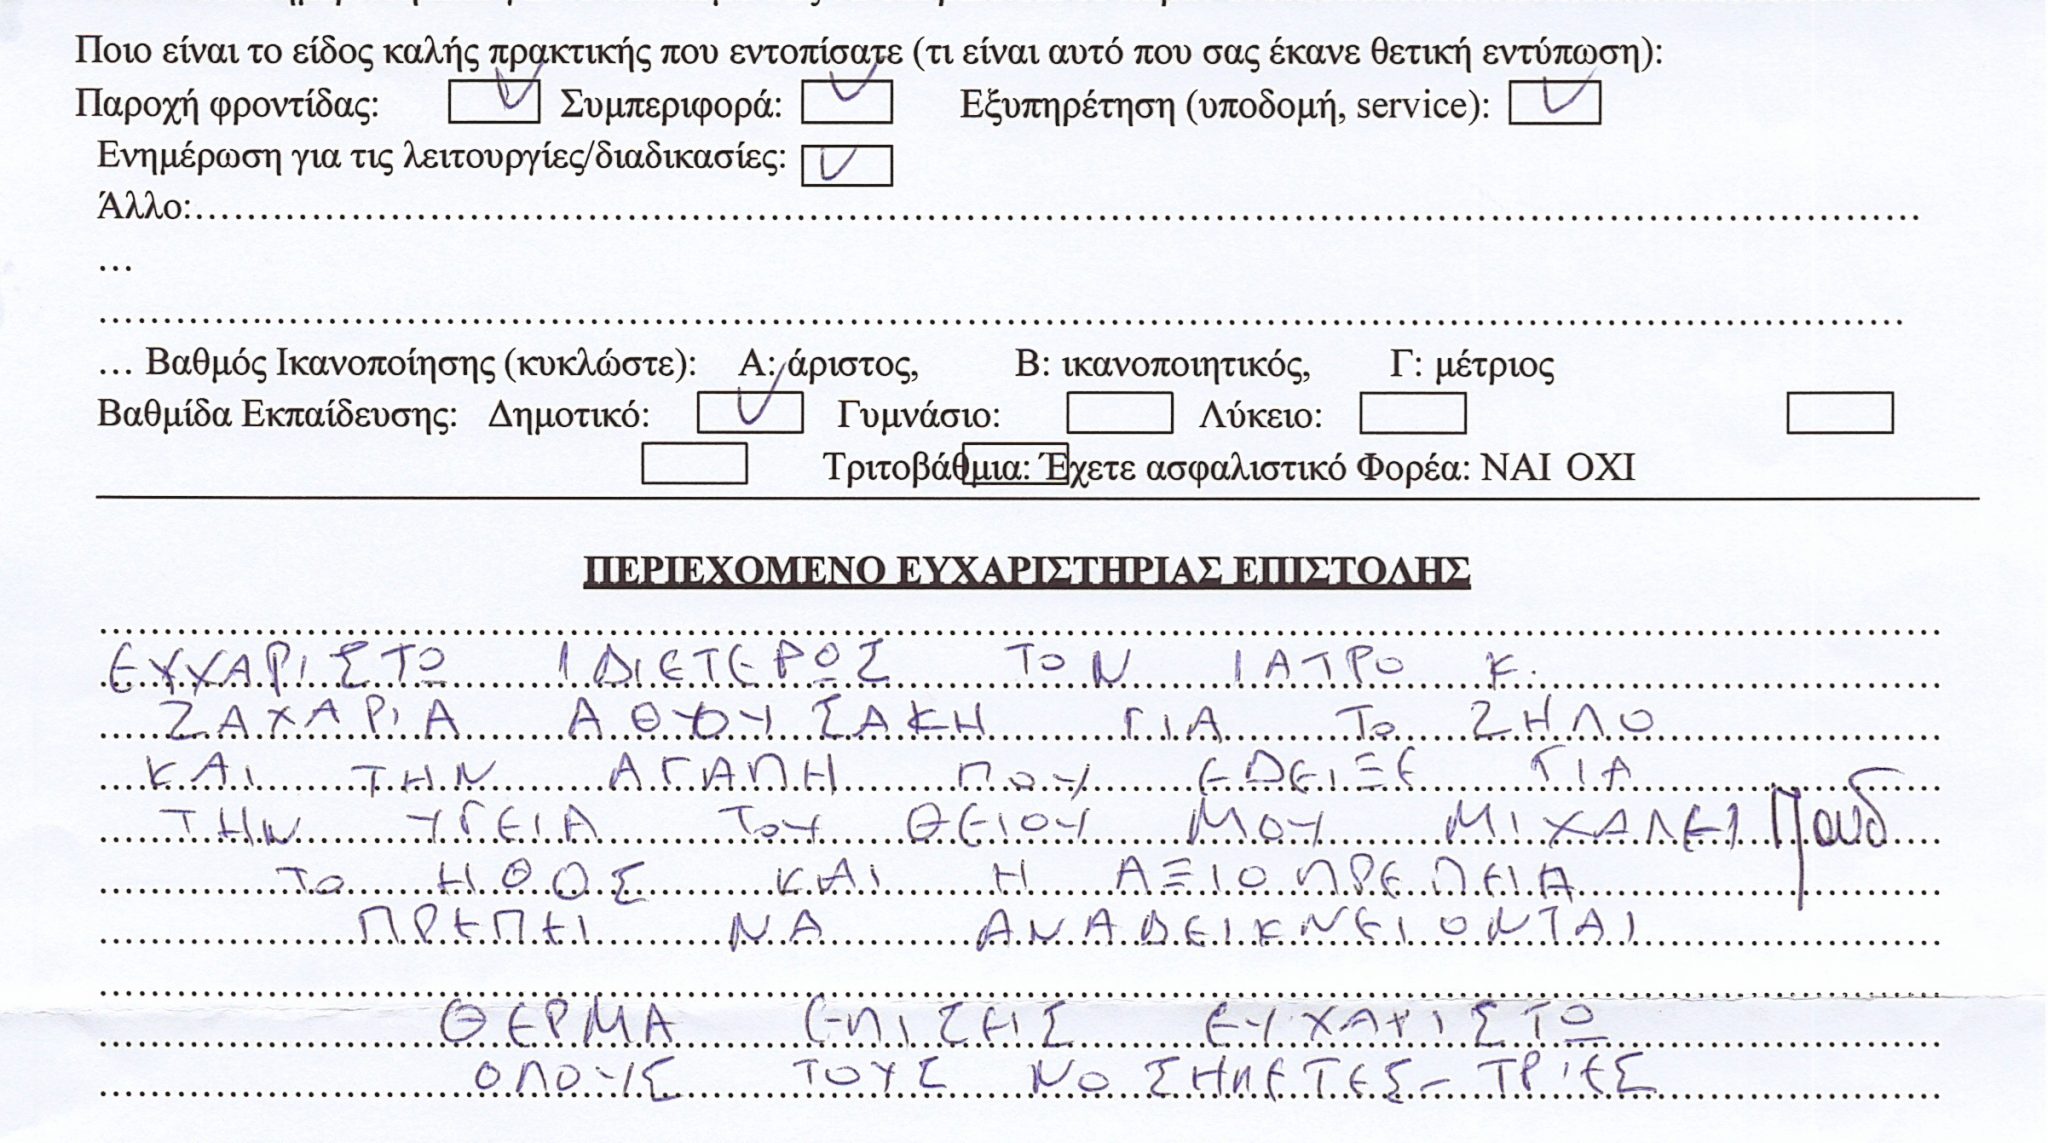 Ποιο είναι το είδος καλής πρακτικής που εντοπίσατε (τι είναι αυτό που σας έκανε θετική εντύπωση):
Παροχή φροντίδας: Συμπεριφορά: Εξυπηρέτηση (υποδομή, service):
Ενημέρωση για τις λειτουργίες/διαδικασίες:
Άλλο:……………………………………………………………………………………
…
……………………………………………………………………………………………
… Βαθμός Ικανοποίησης (κυκλώστε): Α: άριστος, Β: ικανοποιητικός, Γ: μέτριος
Βαθμίδα Εκπαίδευσης: Δημοτικό: Γυμνάσιο: Λύκειο:
Τριτοβάθμια: Έχετε ασφαλιστικό Φορέα: ΝΑΙ ΟΧΙ
ΠΕΡΙΕΧΟΜΕΝΟ ΕΥΧΑΡΙΣΤΗΡΙΑΣ ΕΠΙΣΤΟΛΗΣ
ΕΥΧΑΡΙΣΤΩ ΙΔΙΕΤΕΡΩΣ ΤΟΝ ΙΑΤΡΟ Κ.
ΖΑΧΑΡΙΑ ΑΘΟΥΣΑΚΗ ΓΙΑ ΤΟ ΖΗΛΟ
ΚΑΙ ΤΗΝ ΑΓΑΠΗ ΠΟΥ ΕΔΕΙΞΕ ΓΙΑ
ΤΗΝ ΥΓΕΙΑ ΤΟΥ ΘΕΙΟΥ ΜΟΥ ΜΙΧΑΛΕΙ
ΤΟ ΗΘΟΣ ΚΑΙ Η ΑΞΙΟΠΡΕΠΕΙΑ
ΠΡΕΠΕΙ ΝΑ ΑΝΑΔΕΙΚΝΕΙΟΝΤΑΙ
ΘΕΡΜΑ ΕΠΙΣΕΙΣ ΕΥΧΑΡΙΣΤΩ
ΟΛΟΥΣ ΤΟΥΣ ΝΟΣΗΛΕΤΕΣ-ΤΡΙΕΣ